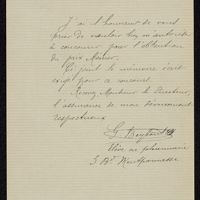 J'ai l'honneur de vous
prier de vouloir bien m'autoriser
à concourir pour l'obtention
du prix Menier.
Ci-joint le mémoire
exigé pour ce concours.
Recevez Monsieur le Directeur,
l'assurance de mes
respectueux
G.
Elève en pharmacie
5 Bd Montparnasse